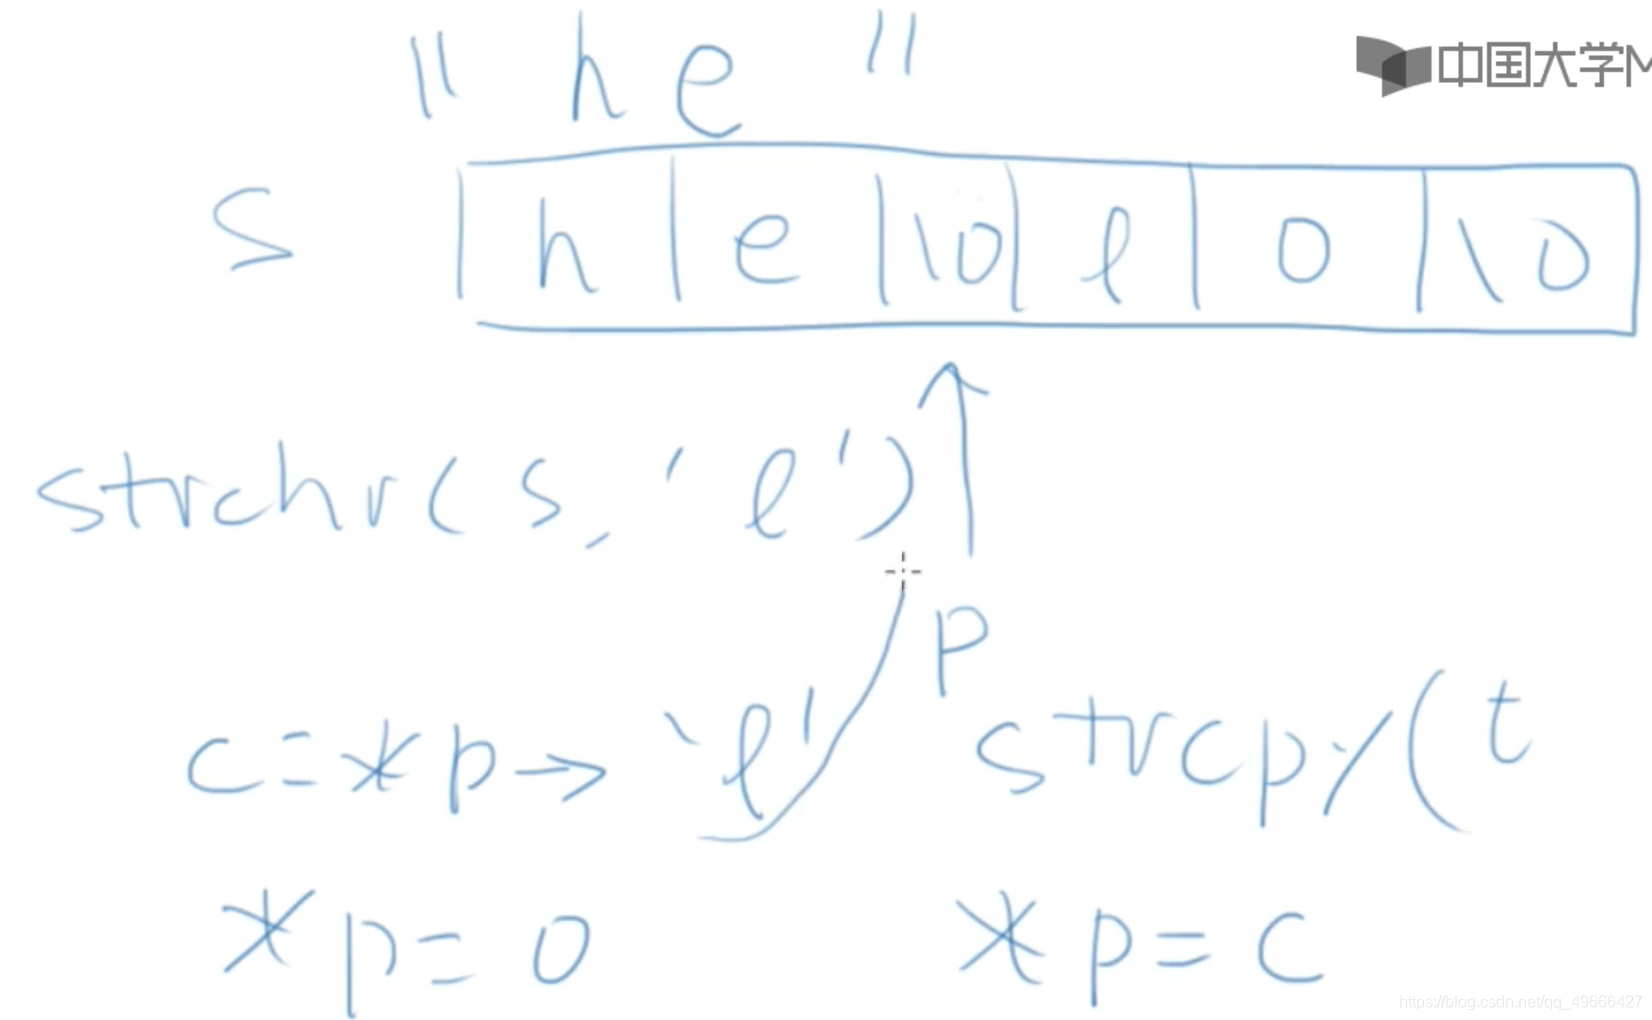 " he "
中国大学M
s h e \0 l o \0
strchr(s, 'l')
p
c=*p→'l' strcpy(t
*p=0 *p=c
https://blog.csdn.net/qq_49666427